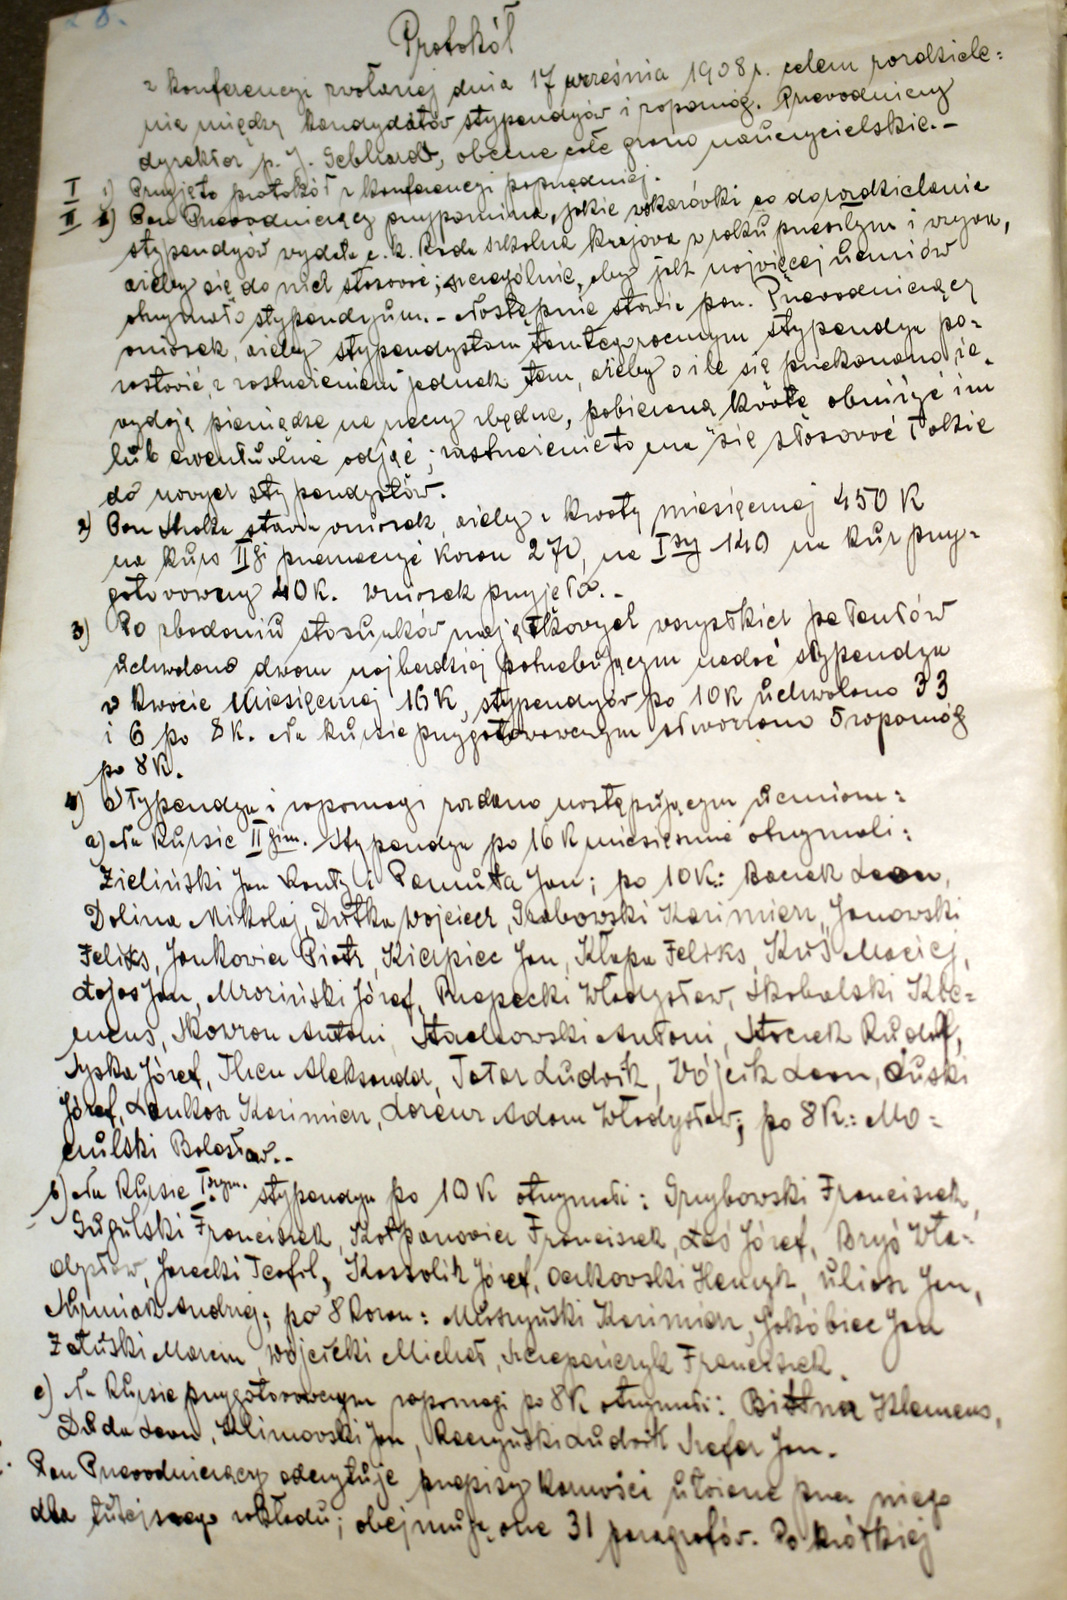 Protokół
z konferencyi zwołanej dnia 17 września 1908 r. celem rozdziele=
nia między kandydatów stypendyów i zapomóg. Przewodniczy
dyrektor p. J. Gebhardt, obecne całe grono nauczycielskie.-
I 1) Przyjęto protokół z konferencyi poprzedniej.
II 1) Pan Przewodniczący przypomina, jakie wskazówki co do rozdzielania
stypendyów wydała c. k. Rada szkolna krajowa w roku przeszłym i wzywa,
ażeby się do nich stosować; szczególnie, aby jak najwięcej uczniów
otrzymało stypendyum.- Następnie stawia pan Przewodniczący
wniosek, ażeby stypendystom tamtegorocznym stypendya po=
zostawić z zastrzeżeniem jednak tem, ażeby o ile się przekonano, że
wydają pieniądze na rzeczy zbędne, pobieraną kwotę obniżyć im
lub ewentualnie odjąć; zastrzeżenie to ma się stosować także
do nowych stypendystów.
2) Pan stawia wniosek, ażeby z kwoty miesięcznej 450 K
na kurs II gi przeznaczyć koron 270, na I szy 140 na kurs przy=
gotowawczy 40 K. Wniosek przyjęto.-
3) Po zbadaniu stosunków majątkowych wszystkich petentów
uchwalono dwom najbardziej potrzebującym nadać stypendya
w kwocie miesięcznej 16 K, stypendyów po 10 K uchwalono 33
i 6 po 8 K. Na kursie przygotowawczym stworzono 5 zapomóg
po 8 K.
4) Stypendya i zapomogi rozdano następującym uczniom:
a) Na kursie II gim. stypendya po 16 K miesięcznie otrzymali:
Zieliński Jan Kanty i Pamuła Jan; po 10 K.: Baczek Leon,
Dolina Mikołaj, Dutka Wojciech, Grabowski Kazimierz, Janowski
Feliks, Jankowicz Piotr, Kierpiec Jan, Kłapa Feliks, Kuś Maciej,
Łojas Jan, Mroziński Józef, Przepecki Władysław, Skobalski Kle=
mens, Skowron Antoni, Stachowski Antoni, Stoczek Rudolf,
Syska Józef, Then Aleksander, Tatar Ludwik, Wójcik Leon, Łuski
Józef, Lankosz Kazimierz, Lorenz Adam Władysław; po 8 K.: Mo=
czulski Bolesław.-
b) Na kursie I szym. stypendya po 10 K otrzymali: Grzybowski Franciszek,
Gugulski Franciszek, Kołpanowicz Franciszek, Łaś Józef, Bryś Wła=
dysław, Jarecki Teofil, Koszolik Józef, Oczkowski Henryk, Ulias Jan,
Nyrniak Andrzej; po 8 koron: Muszyński Kazimierz, Gołąbiec Jan
Załuski Marcin, Wojcicki Michał, Szczepańczyk Franciszek.
c) Na kursie przygotowawczym zapomogi po 8 K otrzymali: Bittner Klemens,
Duda Leon, Klimowski Jan, Raczyński Ludwik, Szefer Jan.
Pan Przewodniczący odczytuje przepisy karności ułożone przez niego
dla tutejszego zakładu; obejmują one 31 paragrafów. Po krótkiej